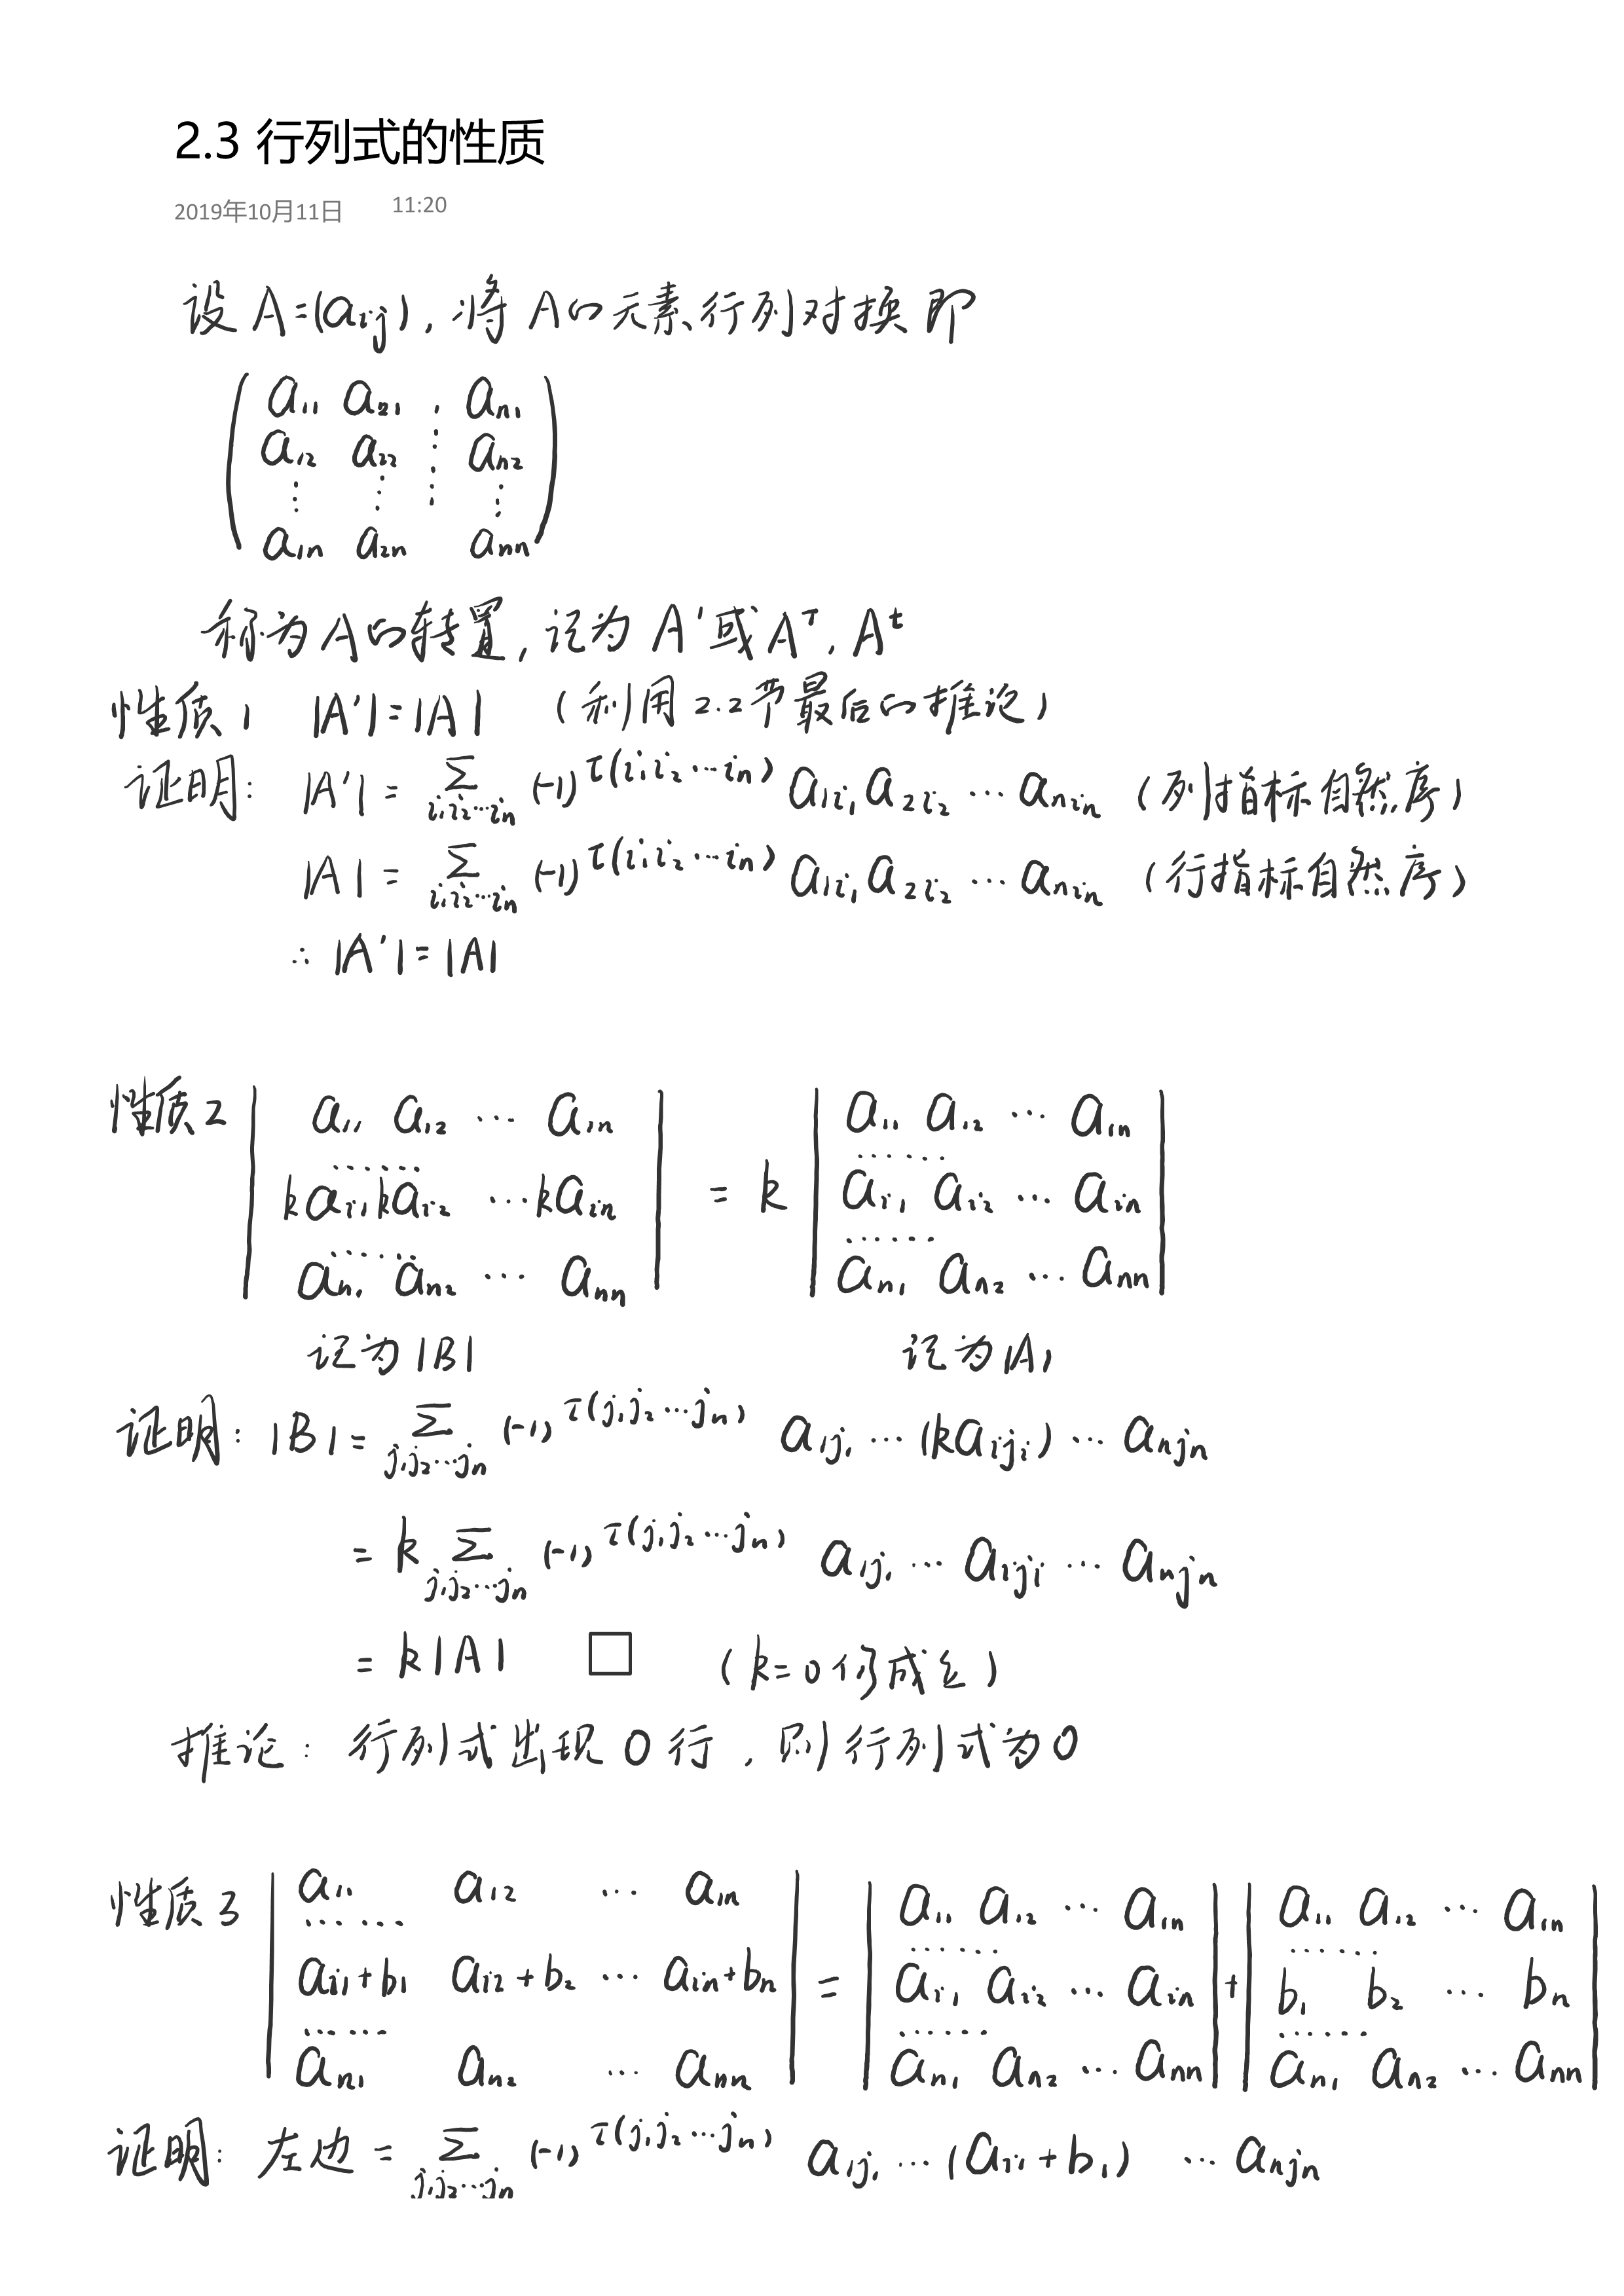 2.3 行列式的性质
2019年10月11日 11:20
设 A=(aᵢⱼ), 将 A的元素行列对换 即
( a₁₁ a₂₁ ⋯ aₙ₁
a₁₂ a₂₂ ⋯ aₙ₂
⋮ ⋮ ⋮ ⋮
a₁ₙ a₂ₙ aₙₙ )
称为 A的转置, 记为 A' 或 Aᵀ, Aᵗ
性质1 |A'|=|A| (利用2.2节最后的推论)
证明: |A'| = Σ_{i₁i₂⋯iₙ} (-1)^{τ(i₁i₂⋯iₙ)} a_{1i₁} a_{2i₂} ⋯ a_{niₙ} (列指标自然序)
|A| = Σ_{i₁i₂⋯iₙ} (-1)^{τ(i₁i₂⋯iₙ)} a_{1i₁} a_{2i₂} ⋯ a_{niₙ} (行指标自然序)
∴ |A'|=|A|
性质2 | a₁₁ a₁₂ ⋯ a₁ₙ | = k | a₁₁ a₁₂ ⋯ a₁ₙ |
⋯⋯ ⋯⋯
| kaᵢ₁ kaᵢ₂ ⋯ kaᵢₙ | | aᵢ₁ aᵢ₂ ⋯ aᵢₙ |
⋯⋯ ⋯⋯
| aₙ₁ aₙ₂ ⋯ aₙₙ | | aₙ₁ aₙ₂ ⋯ aₙₙ |
记为 |B| 记为 |A|
证明: |B| = Σ_{j₁j₂⋯jₙ} (-1)^{τ(j₁j₂⋯jₙ)} a_{1j₁} ⋯ (ka_{ijᵢ}) ⋯ a_{njₙ}
= k Σ_{j₁j₂⋯jₙ} (-1)^{τ(j₁j₂⋯jₙ)} a_{1j₁} ⋯ a_{ijᵢ} ⋯ a_{njₙ}
= k|A| □ (k=0仍成立)
推论: 行列式出现0行, 则行列式为0
性质3 | a₁₁ a₁₂ ⋯ a₁ₙ | = | a₁₁ a₁₂ ⋯ a₁ₙ | + | a₁₁ a₁₂ ⋯ a₁ₙ |
⋯⋯ ⋯⋯ ⋯⋯
| aᵢ₁+b₁ aᵢ₂+b₂ ⋯ aᵢₙ+bₙ | | aᵢ₁ aᵢ₂ ⋯ aᵢₙ | | b₁ b₂ ⋯ bₙ |
⋯⋯ ⋯⋯ ⋯⋯
| aₙ₁ aₙ₂ ⋯ aₙₙ | | aₙ₁ aₙ₂ ⋯ aₙₙ | | aₙ₁ aₙ₂ ⋯ aₙₙ |
证明: 左边 = Σ_{j₁j₂⋯jₙ} (-1)^{τ(j₁j₂⋯jₙ)} a_{1j₁} ⋯ (aᵢ₁+b₁) ⋯ a_{njₙ}